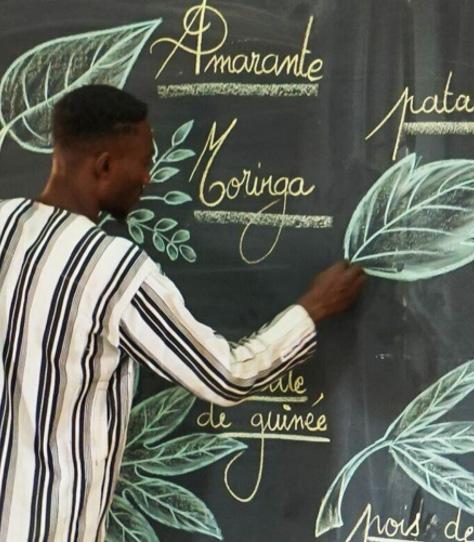 Amarante
Moringa
pata
de guinée
pois de